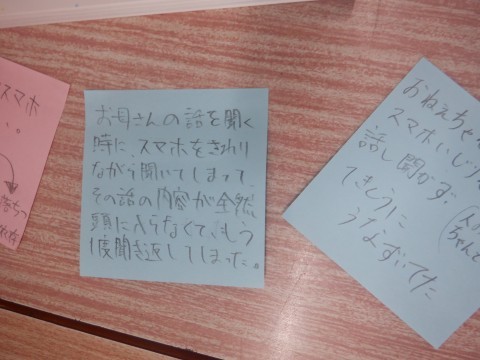 スマホ
お母さんの話を聞く
時に、スマホをさわり
ながら聞いてしまって、
その話の内容が全然
頭に入らなくて、もう
1度聞き返してしまった。
おねえちゃ
スマホいじり
話し聞かず、
てきとうに
うなずいてた